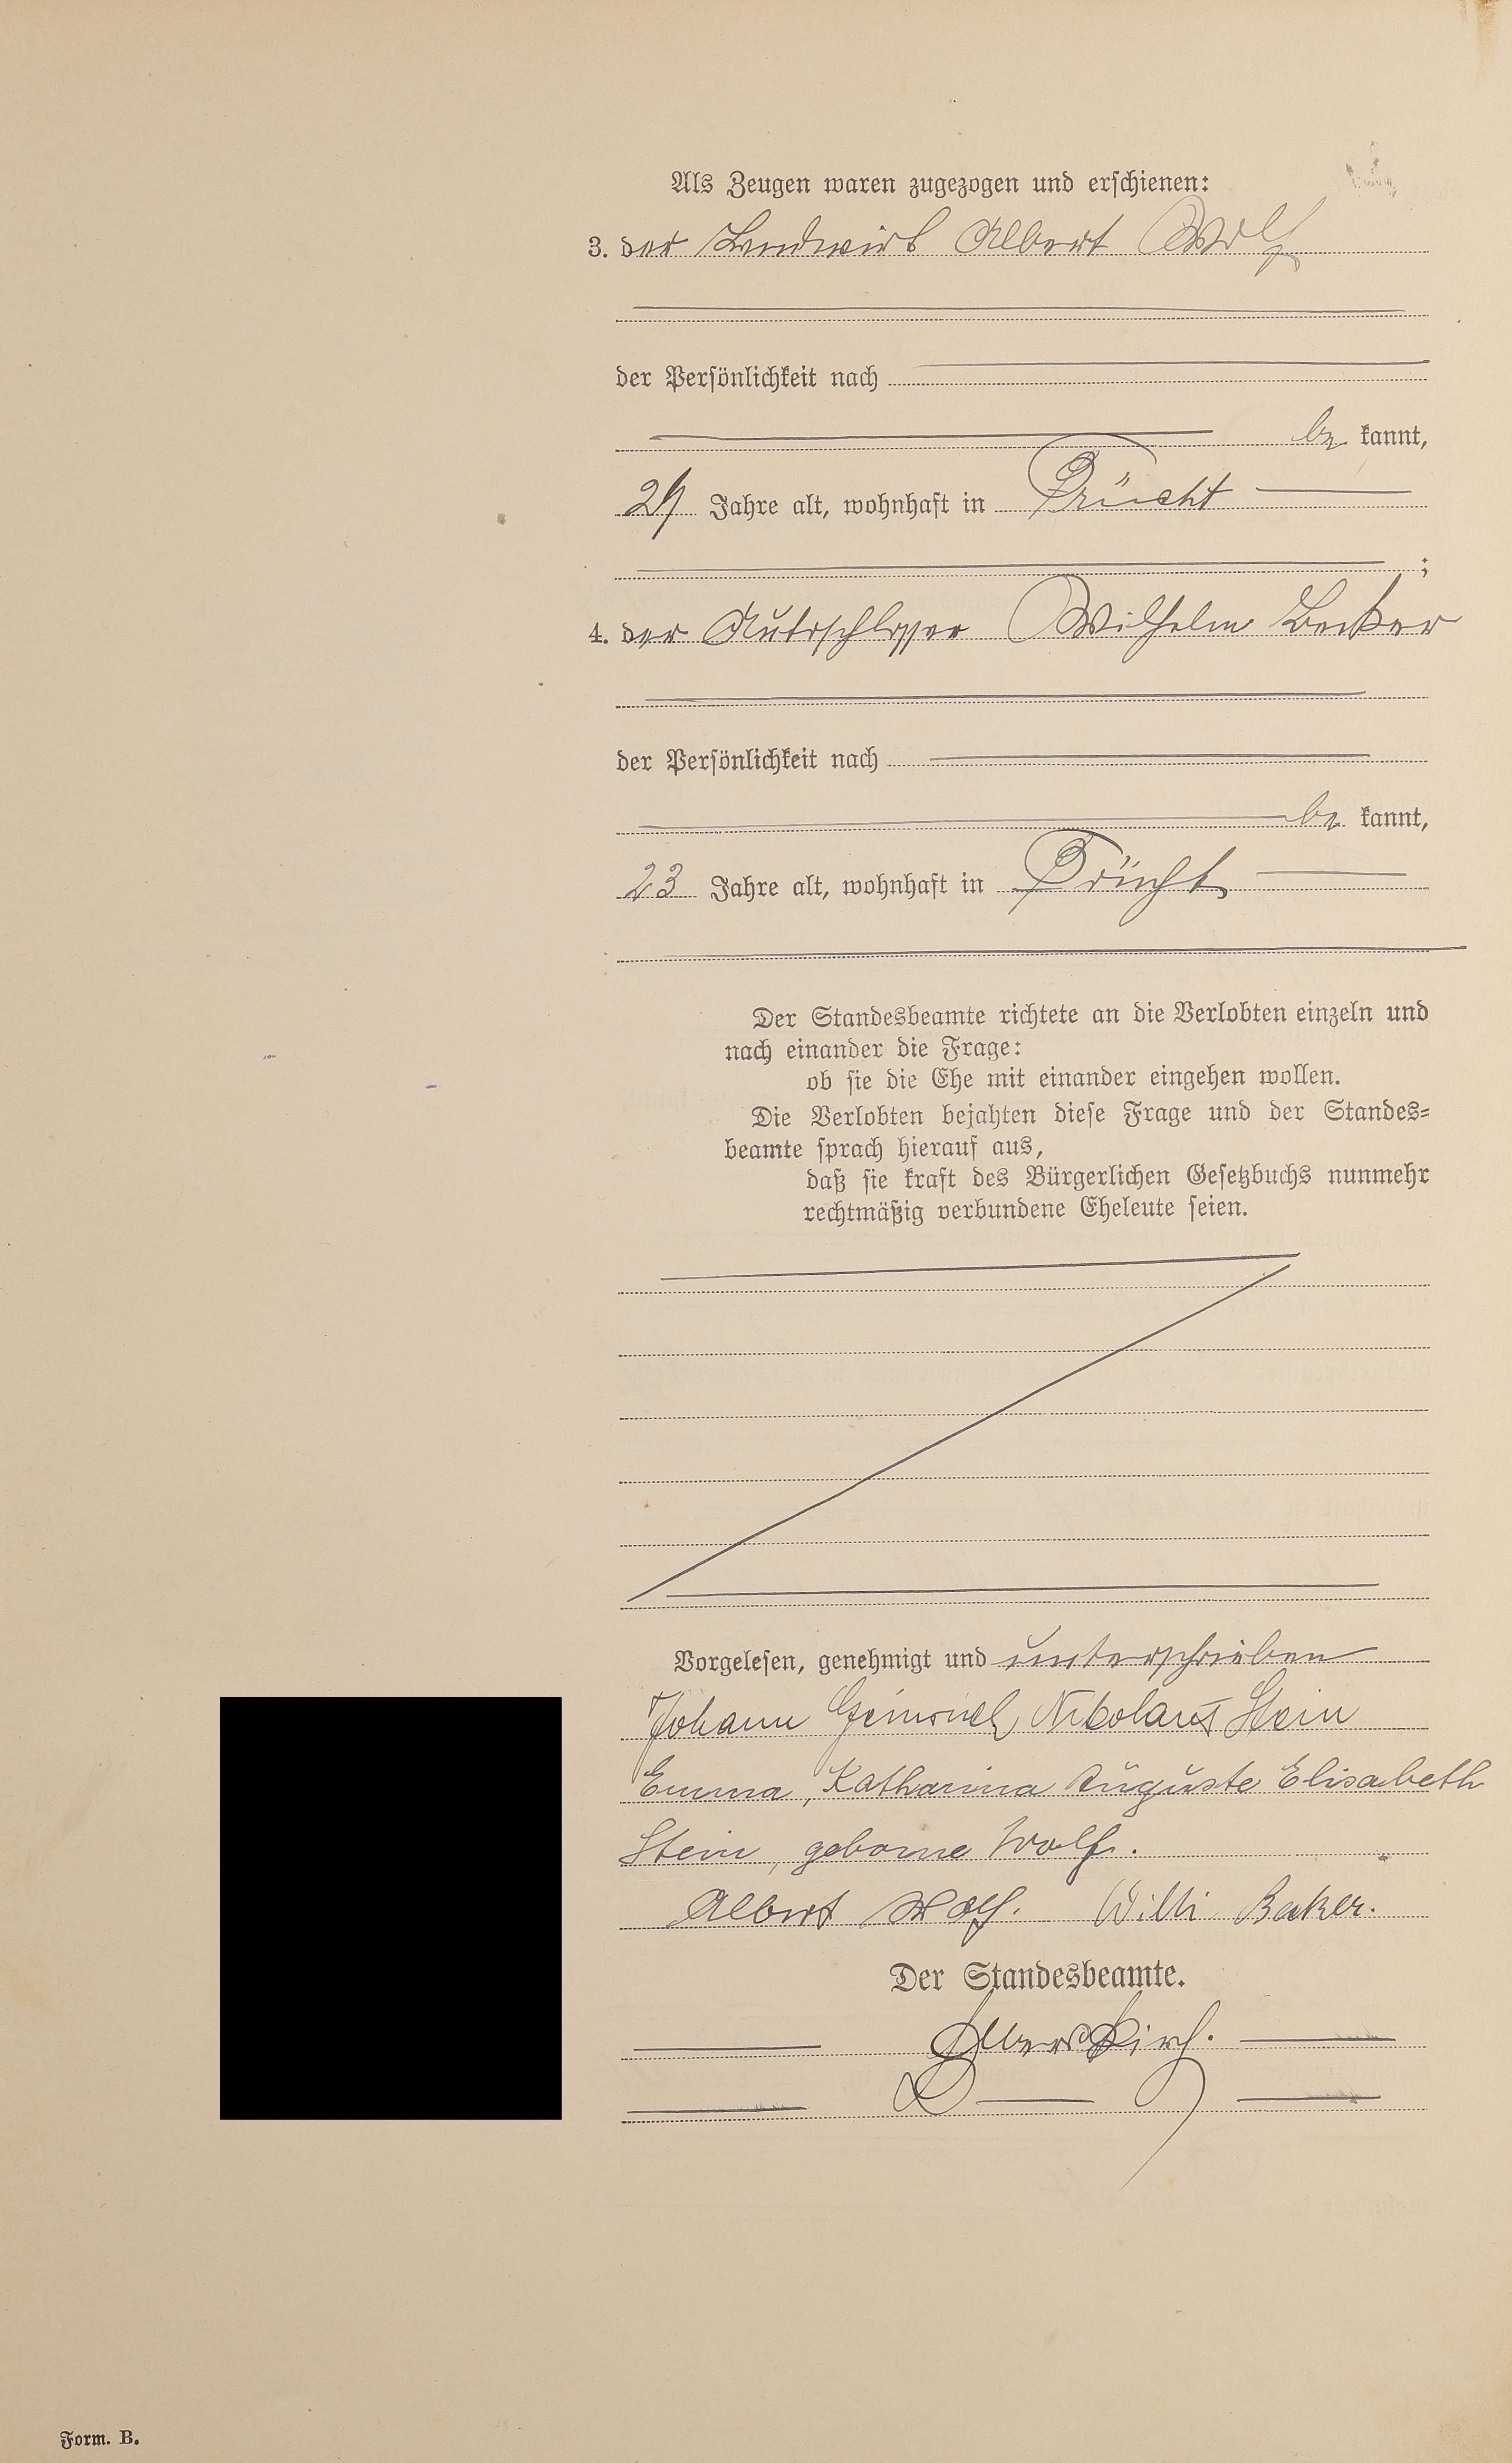 Als Zeugen waren zugezogen und erschienen:
3. der Landwirt Albert Wolf
der Persönlichkeit nach
be kannt,
29 Jahre alt, wohnhaft in Frücht
;
4. der Autoschlosser Wilhelm Becker
der Persönlichkeit nach
be kannt,
23 Jahre alt, wohnhaft in Frücht
Der Standesbeamte richtete an die Verlobten einzeln und
nach einander die Frage:
ob sie die Ehe mit einander eingehen wollen.
Die Verlobten bejahten diese Frage und der Standes=
beamte sprach hierauf aus,
daß sie kraft des Bürgerlichen Gesetzbuchs nunmehr
rechtmäßig verbundene Eheleute seien.
Vorgelesen, genehmigt und unterschrieben
Johann Heinrich, Nikolaus Stein
Emma, Katharina Auguste Elisabeth
Stein, geborne Wolf.
Albert Wolf. Willi Becker.
Der Standesbeamte.
Form. B.